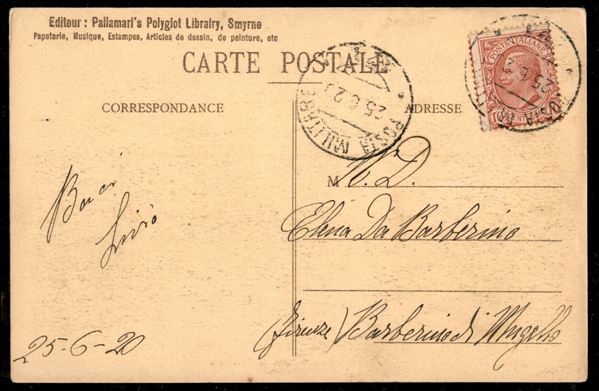 Editeur : Pallamari's Polyglot Librairy, Smyrne
Papeterie, Musique, Estampes, Articles de dessin, de peinture, etc
CARTE POSTALE
CORRESPONDANCE
ADRESSE
POSTA MILITARE
25.6.20
POSTE ITALIANE
25.6.2
POSTA M
M N. D.
Elena Da Barberino
(Firenze) Barberino di Mugello
Baci
25-6-20